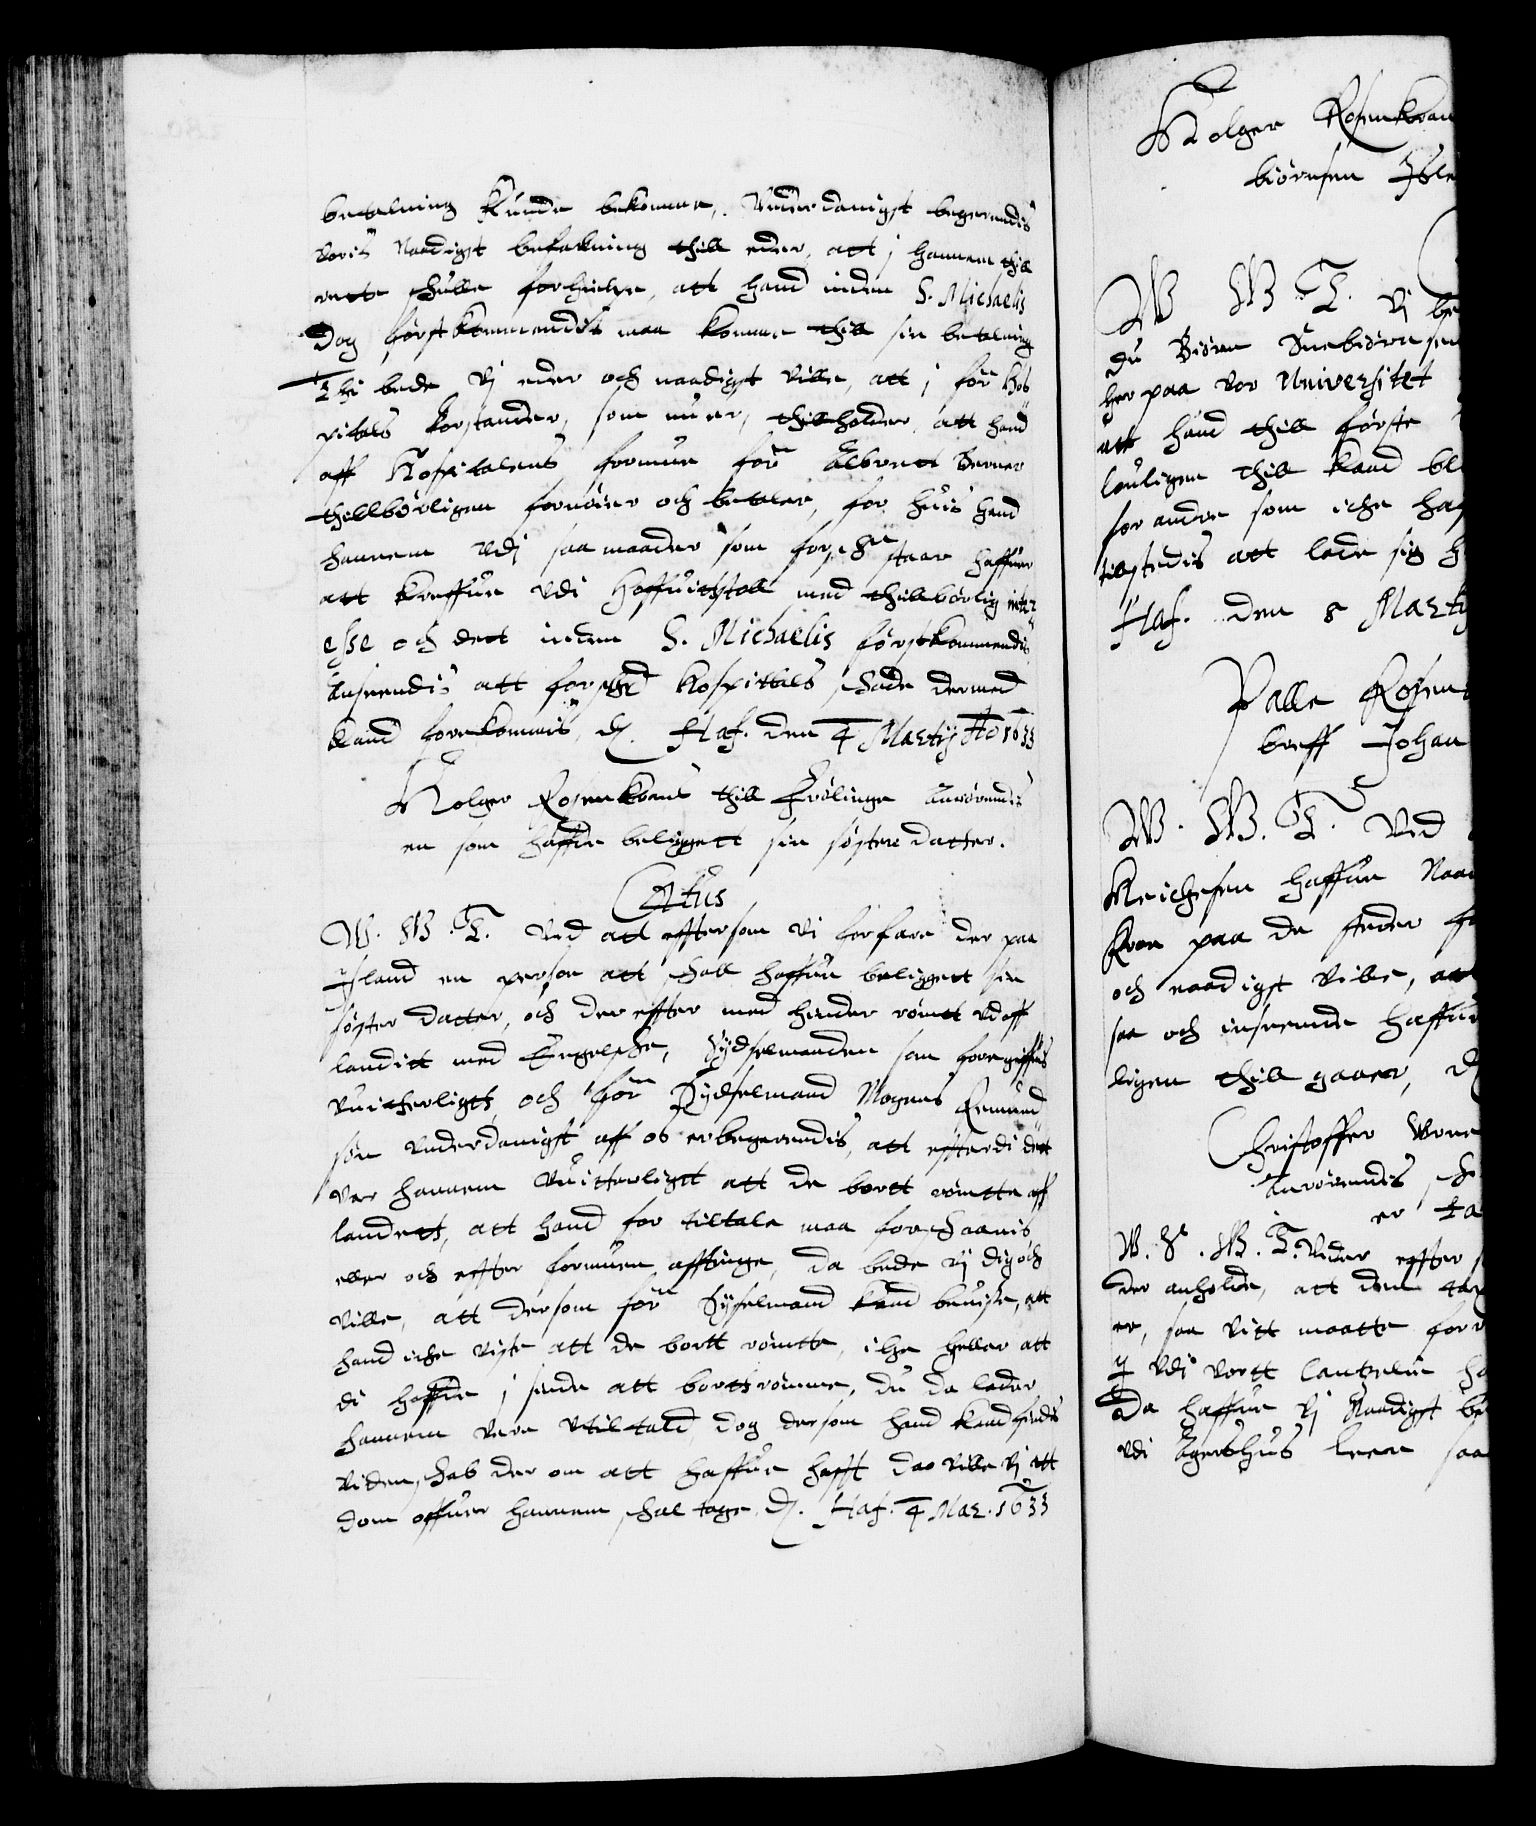 betalning Kunde bekomme, Vnderdanigst begerendis
voris Naadigst befalning thill eder, att i hannem thill
rette schulle forhielpe, att hand inden S. Michaelis
Dag førstkommendis maa komme thill sin betalning
Thi bede Vi eder och naadigst ville, att i for: Hos
pitals forstander, som nu er, thilholder, att hand
aff Hospitalens formue for: Albrett Berner
thillbørligen fornøier och betaler, for huis hand
hannem vdi saa maader som forschr: staar haffuer
att kreffue vdi Hoffuitstoll med thillbørlig inter
esse och dett inden S. Michaelis førstkommendis
Anseendis att forschr: Hospittals schade dermed
kand forekommis, Haf. den 4 Martij Ao 1633
Holger Rosenkrans thill Frølinge Anrørendis
en som haffde beliggett sin søster datter.
C4tus
W. G. T. Ved att effter som Vi forfare der paa
Island en person att schall haffue beliggett sin
søster datter, och der effter med hinder rømtt vdaff
landitt med Engelsche, Sydselmanden som foregiffues
vuitterligt, och for: Sydselmand Mogens Remund
søn vnderdanigst aff os er begerendis, att effterdi dett
var hannem vuitterligtt att de bortt rømtte aff
landett, att hand for tiltale maa forschaanis
eller och effter formuen afftinge, da bede vi dig och
ville, att dersom for: Sysselmand kand beuise, att
hand iche viste att de bortt rømtte, iche heller att
di haffde i sinde att borttrømme, du da lader
hannem vere vtiltald, dog dersom hand kand findis
videnschab der om att haffue hafft daa ville Vi att
dom offuer hannem schal tage. Haf. 4 Mar. 1633
Holger Rosenkran
biørnsen Isle
W G. T. Vi
du Biørn Snebiørnsen
her paa vor Universitet
att hand thill første
louligen thill kand bl
for andre som iche haf
tilstedis att lade sig
Haf. den 8 Marty
Palle Rosen
breff Johan
W. G. T. Ved
Meichesen haffue Naa
Kroe paa de steder
och naadigst ville, att
saa och inseende haffue
ligen thill gaaer,
Christoffer Vrne
Anrørendis
er ta
W. S. G. T. Vider effter
der anholde, att dem
er, saa vitt maatte for
vdi vortt Cantzelie
Da haffue Vi Naadigst be
vdi Agershus leen saa